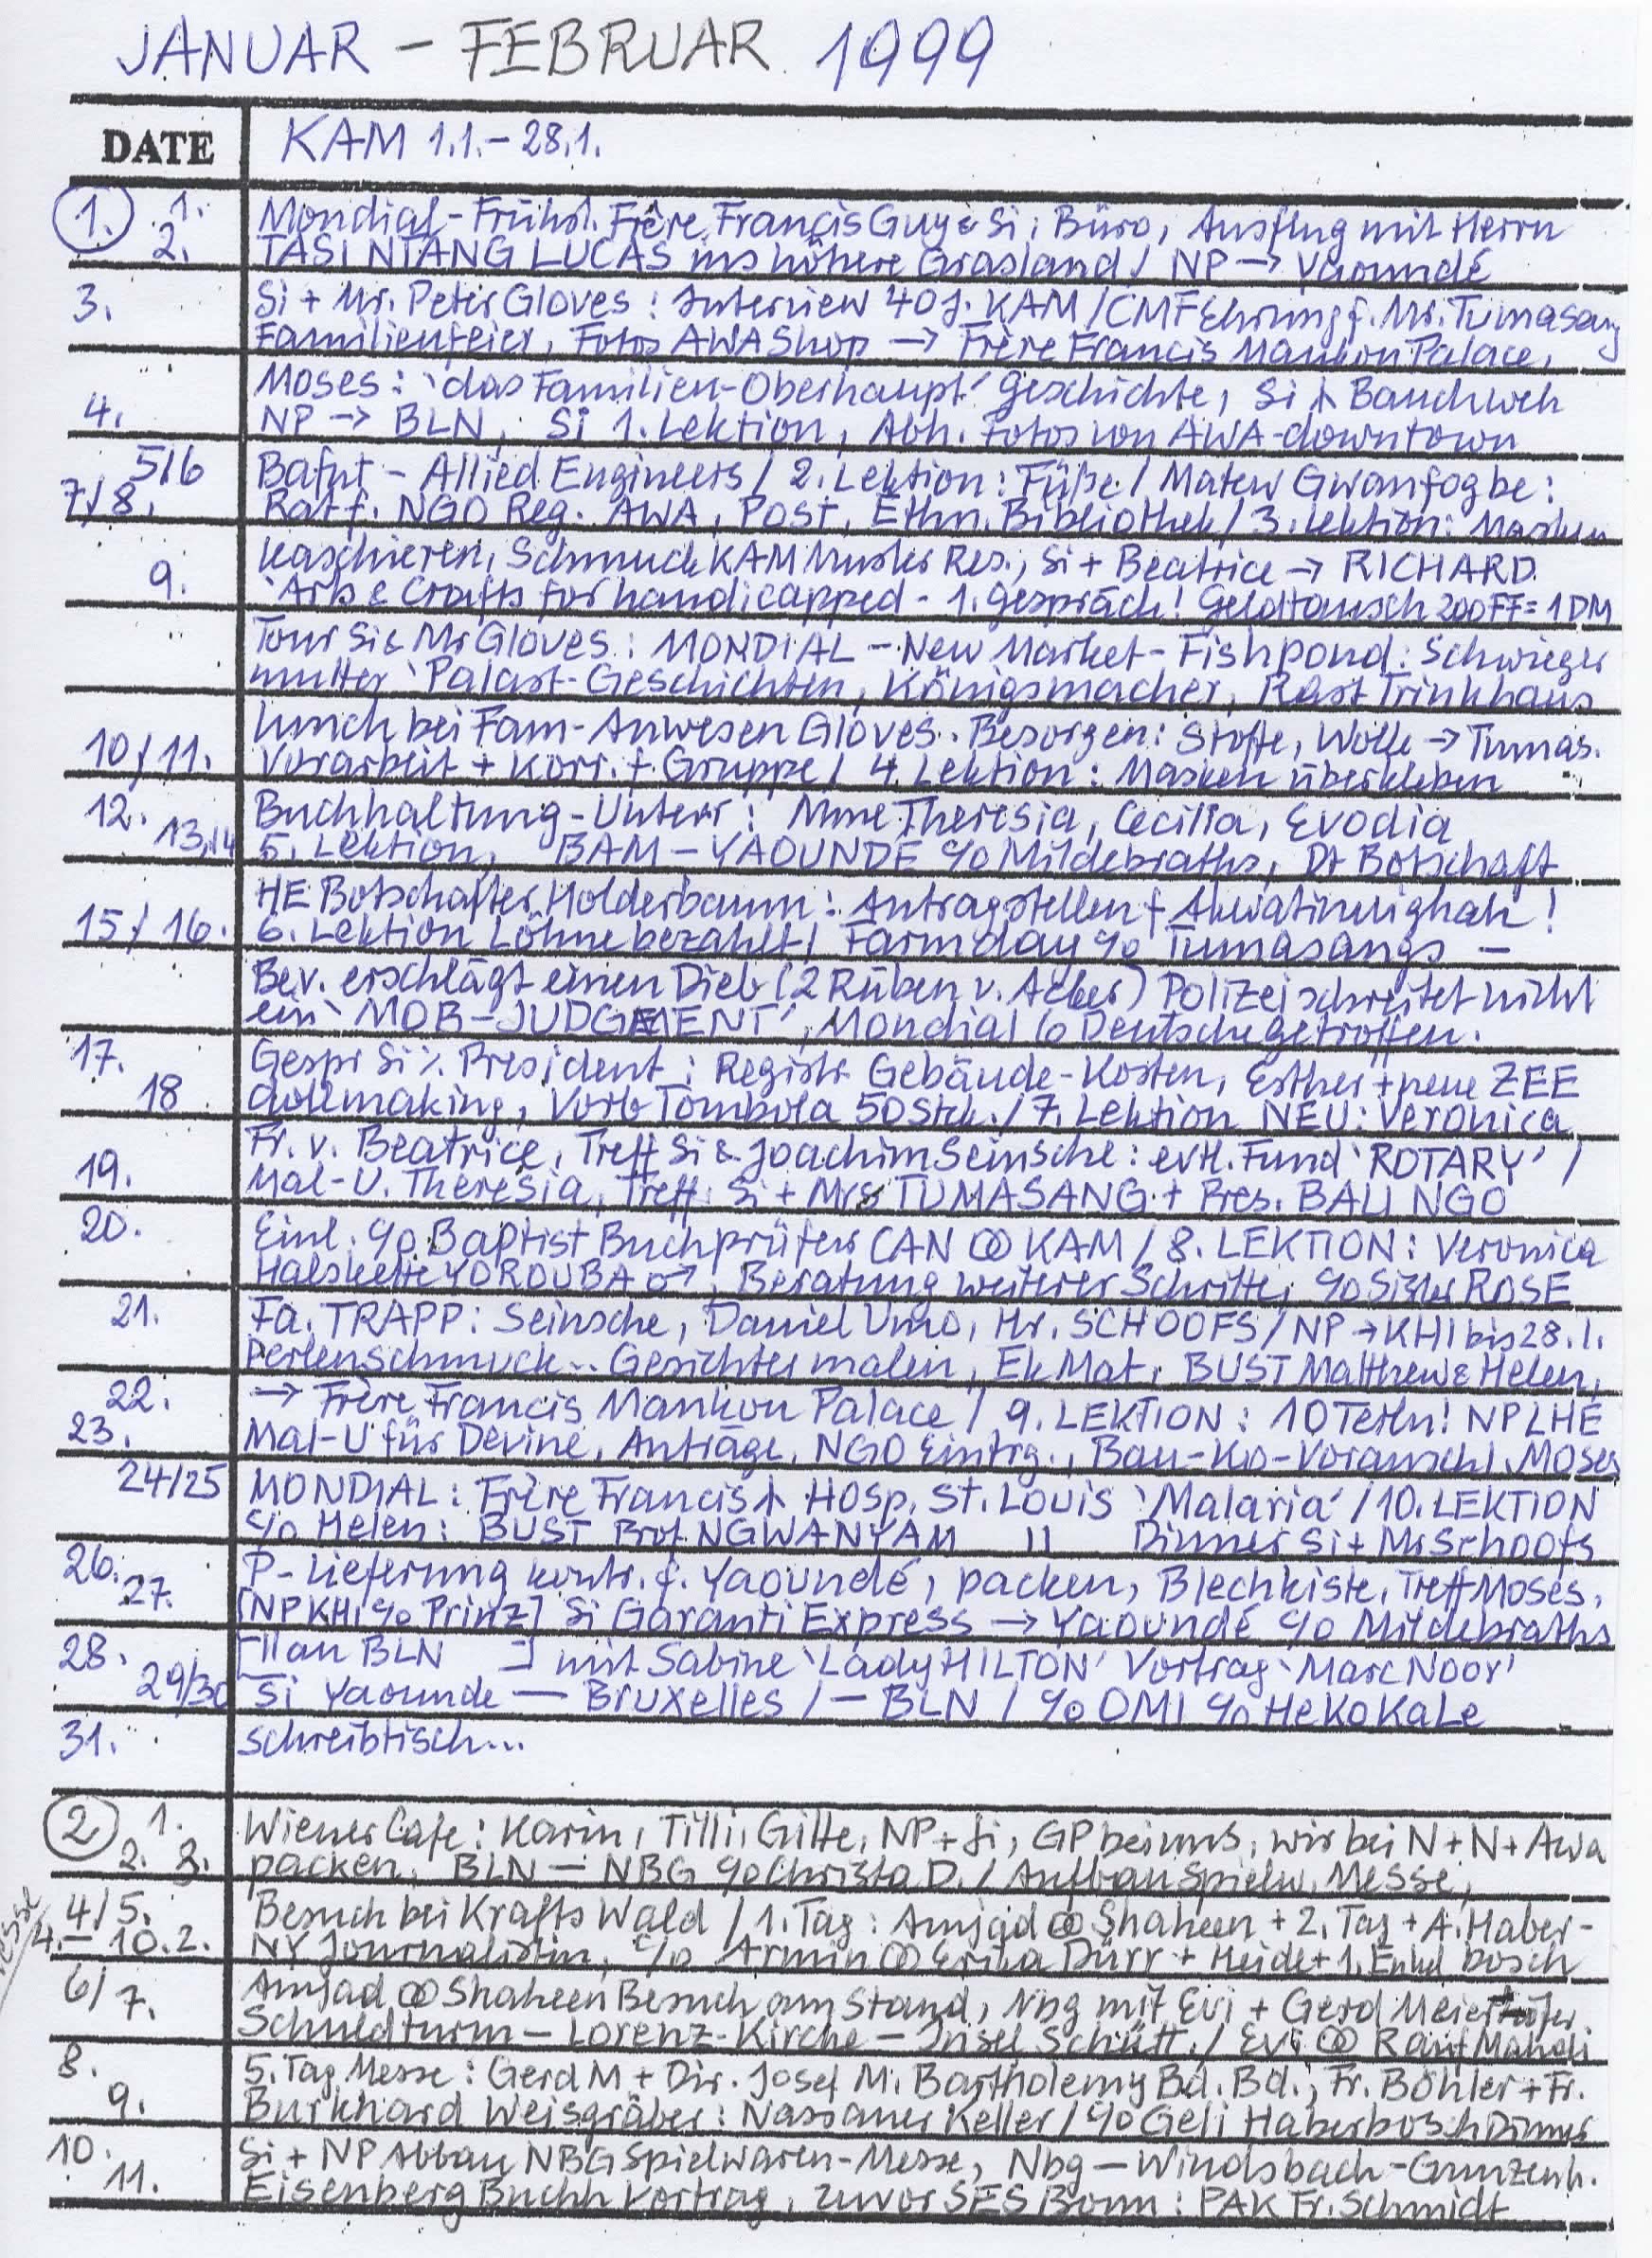 JANUAR – FEBRUAR 1999
DATE KAM 1.1.–28.1.
1. 1. Mondial-Frühst. Frère Francis Guy & Si; Büro, Ausflug mit Herrn
2. TASI NTANG LUCAS ins höhere Grasland / NP → Yaoundé
3. Si + Mr. Peter Gloves: Interview 40 J. KAM / CMF Ehrung f. Mr. Tumasang
Familienfeier, Fotos AWA Shop → Frère Francis Mankon Palace,
Moses: 'das Familien-Oberhaupt' Geschichte, Si Bauchweh
4. NP → BLN, Si 1. Lektion, Abh. Fotos von AWA-downtown
5/6 Bafut – Allied Engineers / 2. Lektion: Füße / Matew Gwanfogbe:
7/8. Rat f. NGO Reg. AWA, Post, Ethn. Bibliothek / 3. Lektion: Masken
kaschieren, Schmuck KAM Muster Res., Si + Beatrice → RICHARD
9. 'Arts & Crafts for handicapped - 1. Gespräch! Geldtausch 200FF = 1DM
Tour Si & Mr Gloves: MONDIAL – New Market – Fishpond: Schwieger
mutter 'Palast-Geschichten, Königsmacher, Rast Trinkhaus
lunch bei Fam-Anwesen Gloves. Besorgen: Stoffe, Wolle → Tumas.
10/11. Vorarbeit + Korr. f. Gruppe / 4. Lektion: Masken überkleben
12. Buchhaltung-Unterr: Mme Theresia, Cecilia, Evodia
13,14 5. Lektion, BAM – YAOUNDE c/o Mildebraths, Dt Botschaft
HE Botschafter Holderbaum: Antragstellen f. !
15/16. 6. Lektion Löhne bezahlt / Farmday c/o Tumasangs –
Bev. erschlägt einen Dieb (2 Rüben v. Acker) Polizei schreitet nicht
ein 'MOB-JUDGEMENT', Mondial 10 Deutsche getroffen.
17. Gespr Si ./. President: Registr Gebäude-Kosten, Esther + neue ZEE
18 dollmaking, Vorb Tombola 50 Stck. / 7. Lektion NEU: Veronica
Fr. v. Beatrice, Treff Si & Joachim Seinsche: evtl. Fund 'ROTARY' /
19. Mal-U. Theresia, Treff: Si + Mrs TUMASANG + Pres. BALI NGO
20. Einl. c/o Baptist Buchprüfers CAN ⚭ KAM / 8. LEKTION: Veronica
Halskette YOROUBA ♂, Beratung weiterer Schritte, c/o Sister ROSE
21. Fa. TRAPP: Seinsche, Daniel Umo, Mr. SCHOOFS / NP → KHI bis 28.1.
Perlenschmuck... Gesichter malen, Ek Mat, BUST Matthew & Helen,
22. → Frère Francis Mankon Palace / 9. LEKTION: 10 Teiln! NP LHE
23. Mal-U für Devine, Anträge, NGO Eintrg., Bau-Ko-Voranschl. Moses
24/25 MONDIAL: Frère Francis Hosp. St. Louis 'Malaria' / 10. LEKTION
c/o Helen: BUST Prof. NGWANYAM II Dinner Si + Mr Schoofs
26. P-Lieferung kontr. f. Yaoundé, packen, Blechkiste, Treff Moses,
27. [NP KHI c/o Prinz] Si Garanti Express → Yaoundé c/o Mildebraths
28. [ an BLN ] mit Sabine 'Lady HILTON' Vortrag 'Marc Noor'
29/30 Si Yaounde — Bruxelles / — BLN / c/o OMI c/o HeKoKaLe
31. Schreibtisch...
2 1. Wiener Cafe: Karin, Tilli, Gitte, NP + Si, GP bei uns, wir bei N + N + Awa
2. 3. packen, BLN — NBG c/o Christa D. / Aufbau Spielw. Messe,
4/5. Besuch bei Krafts Wald / 1. Tag: Amjad ⚭ Shaheen + 2. Tag + A. Haber-
Messe 4.–10.2. NY Journalistin, c/o Armin ⚭ Erika Dürr + Heide + 1. Enkel bosch
6/7. Amjad ⚭ Shaheen Besuch am Stand, Nbg mit Evi + Gerd Meierhöfer
Schuldturm – Lorenz-Kirche – Insel Schütt. / Evi ⚭ Rauf Mahdi
8. 5. Tag Messe: Gerd M + Dir. Josef M. Bartholemy Bd. Bd., Fr. Böhler + Fr.
9. Burkhard Weisgräber: Nassauer Keller / c/o Geli Haberbosch Dinner
10. Si + NP Abbau NBG Spielwaren-Messe, Nbg – Windsbach – Gunzenh.
11. Eisenberg Buchh Vortrag, zuvor SES Bonn: PAK Fr. Schmidt